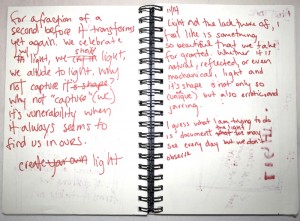 For a fraction of a
second before it transforms
yet again. We celebrate
w/ light, we cry in light,
we allude to light. Why
not capture it's shape?
Why not "capture" (wc)
it's vunerability when
it always seems to
find us in ours.
create your own light
11/14
Light and the lack there of, I
feel like is something
so beautiful that we take
for granted. Whether it is
natural, reflected, or even
mechanical, light and
it's shape is not only so
(unique) but also erratic and
jarring.
I guess what I am trying to do
is document the light
see every day but we don't
observe